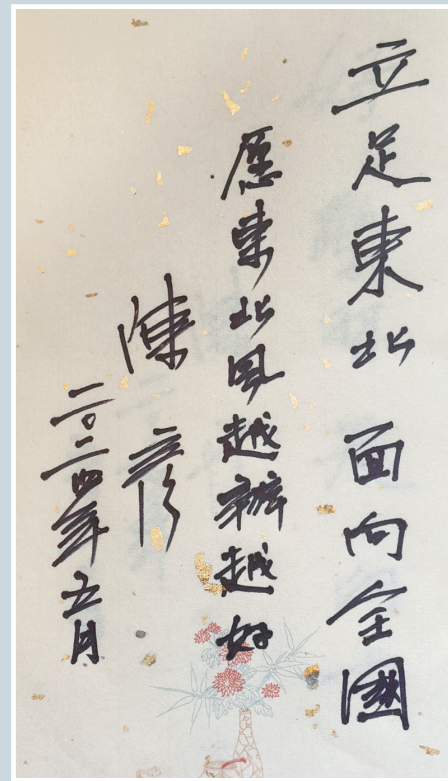 立足東北 面向全國
愿東北風越辦越好
陳彦
二〇二四年五月